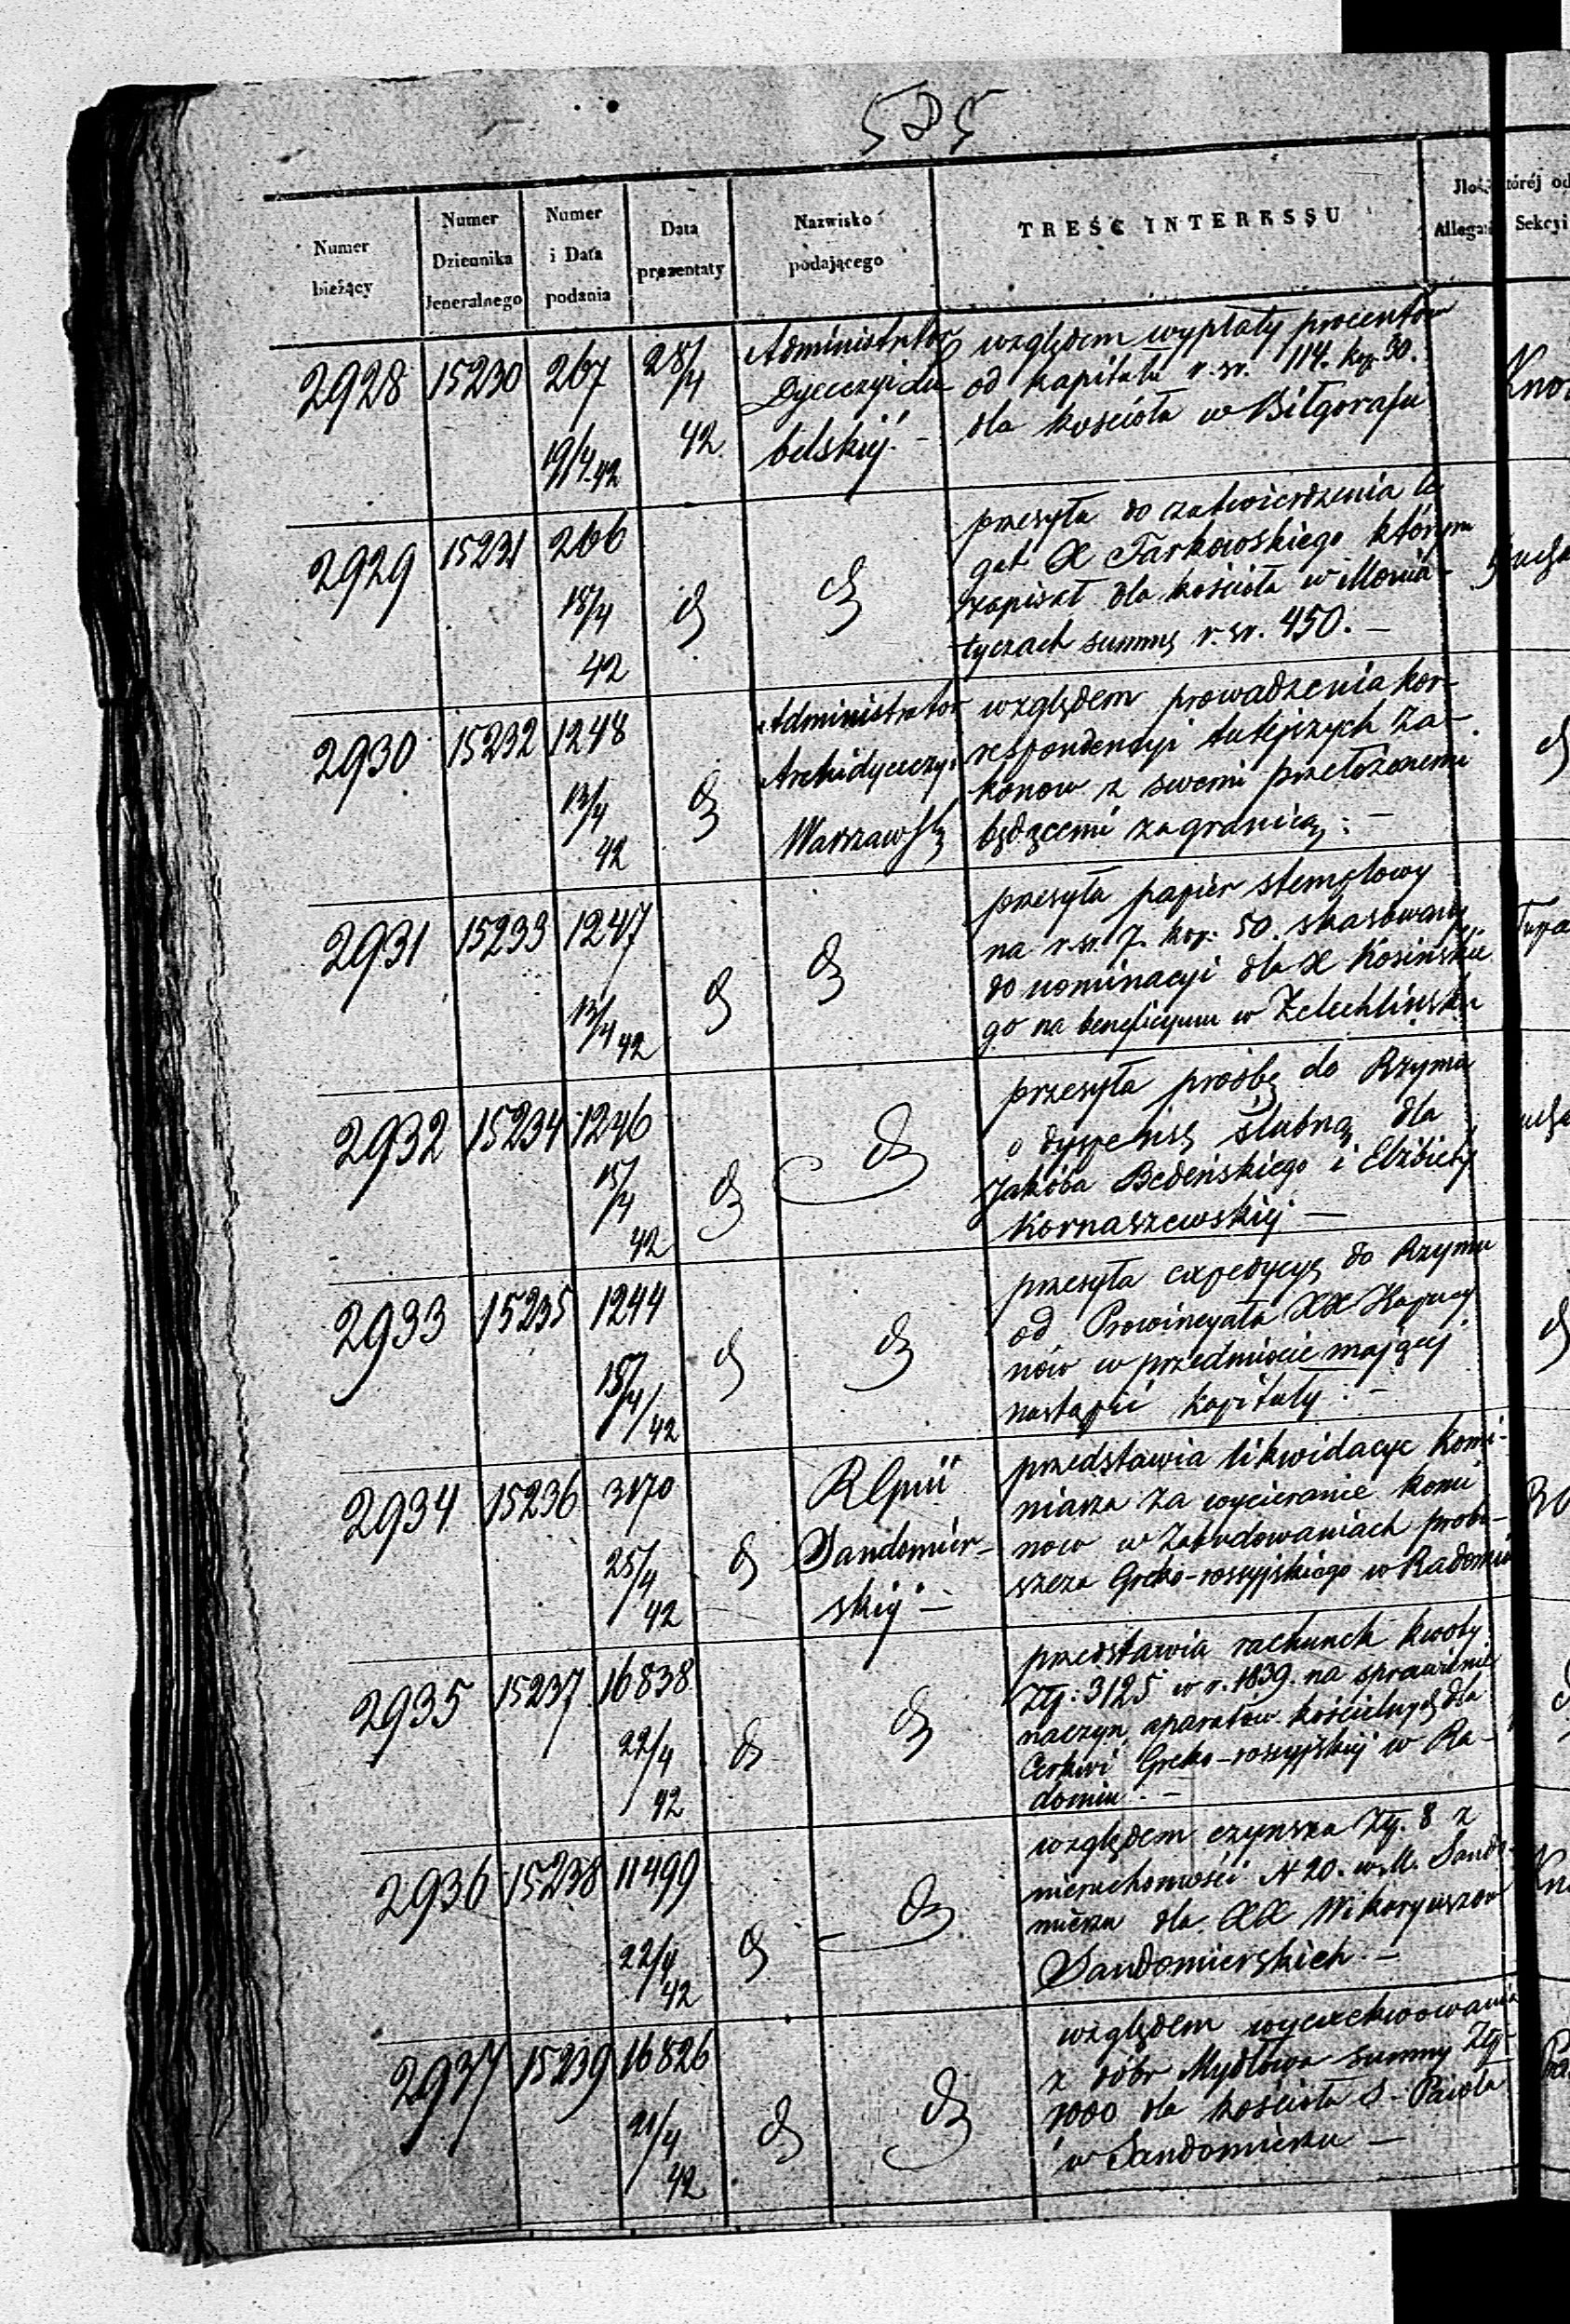 525
Numer bieżący
Numer Dziennika Jeneralnego
Numer i Data podania
Data prezentaty
Nazwisko podającego
TREŚĆ INTERESSU
Jlość Allegat
której od
Sekcyi
2928 15230 267 19/4 42 28/4 42
Administrator
Dyecezyi Lu
belskiej. –
względem wypłaty procentów
od kapitału r. sr. 114. kop. 30.
dla kościoła w Biłgoraju
2929 15231 266 18/4 42
przesyła do zatwierdzenia le
gat X Tarkowskiego którym
zapisał dla kościoła w Monia-
tyczach summę r. sr. 450. –
2930 15232 1248 13/4 42
Administrator
Archidyecezyi
Warszawsk
względem prowadzenia kor-
respondencyi tutejszych Za-
konow z swemi przełożonemi
będącemi zagranicą: –
2931 15233 1247 13/4 42
przesyła papier stemplowy
na r. sr. 7. kop: 50. skasowany
do nominacyi dla X Kosińskie
go na beneficyum w Żelechlinsku
2932 15234 1246 15/4 42
przesyła prośbę do Rzymu
o dyspensę ślubną dla
Jakóba Bedeńskiego i Elżbiety
Kornaszewskiej –
2933 15235 1244 15/4/42
przesyła expedycyę do Rzymu
od Prowincyała XX Kapucy
nów w przedmiocie mającej
nastąpić kapituły: –
2934 15236 3170 25/4 42
Sandomier-
skiej –
przedstawia likwidacye komi-
niarza za wycieranie komi
now w Zabudowaniach probo-
szcza Greko-rossyjskiego w Radomiu
2935 15237 16838 22/4 42
przedstawia rachunek kwoty
Złp: 3125 w r. 1839. na sprawienie
naczyn, aparatów kościelnych dla
Cerkwi Greko-rossyjskiej w Ra-
domiu. –
2936 15238 11499 22/4 42
względem czynszu Złp. 8 z
nieruchomości N 20. w M. Sando-
mierzu dla XX Wikaryuszow
Sandomierskich. –
2937 15239 16826 21/4 42
względem wyexekwowania
z dóbr Mydłowa summy Złp
1000 dla kościoła S- Pawła
w Sandomierzu –